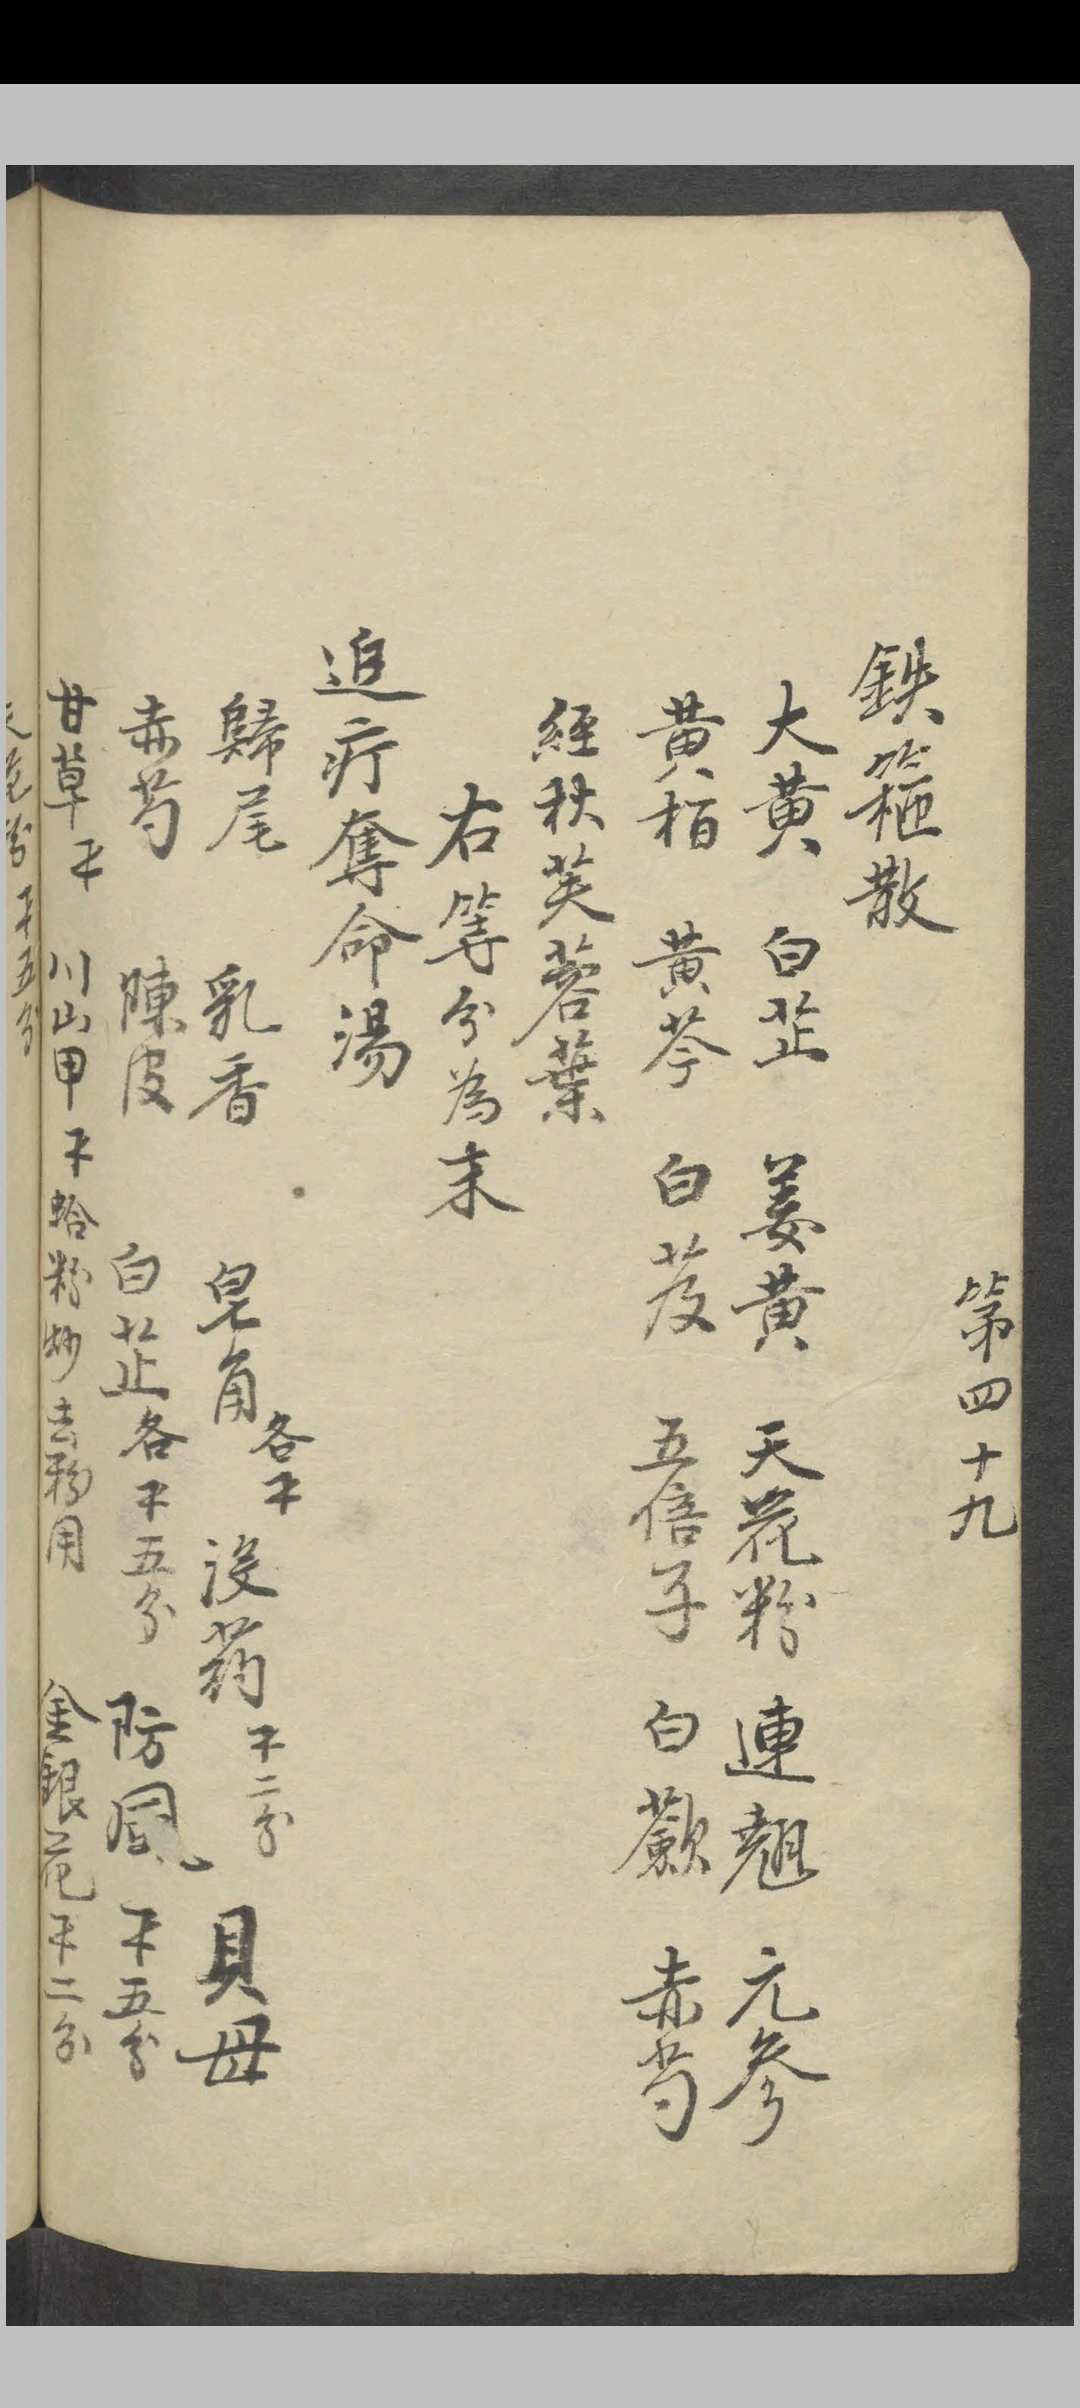 第四十九
鉄箍散
大黄 白芷 姜黄 天花粉 連翹 元参
黄栢 黄芩 白芨 五倍子 白蘞 赤芍
經秋芙蓉葉
右等分為末
追疔奪命湯
歸尾 乳香 皂角各不 沒药不二分 貝母
赤芍 陳皮 白芷各不五分 防風不五分
甘草不 川山甲不蛤粉炒去粉用 金銀花不二分
天花粉不五分